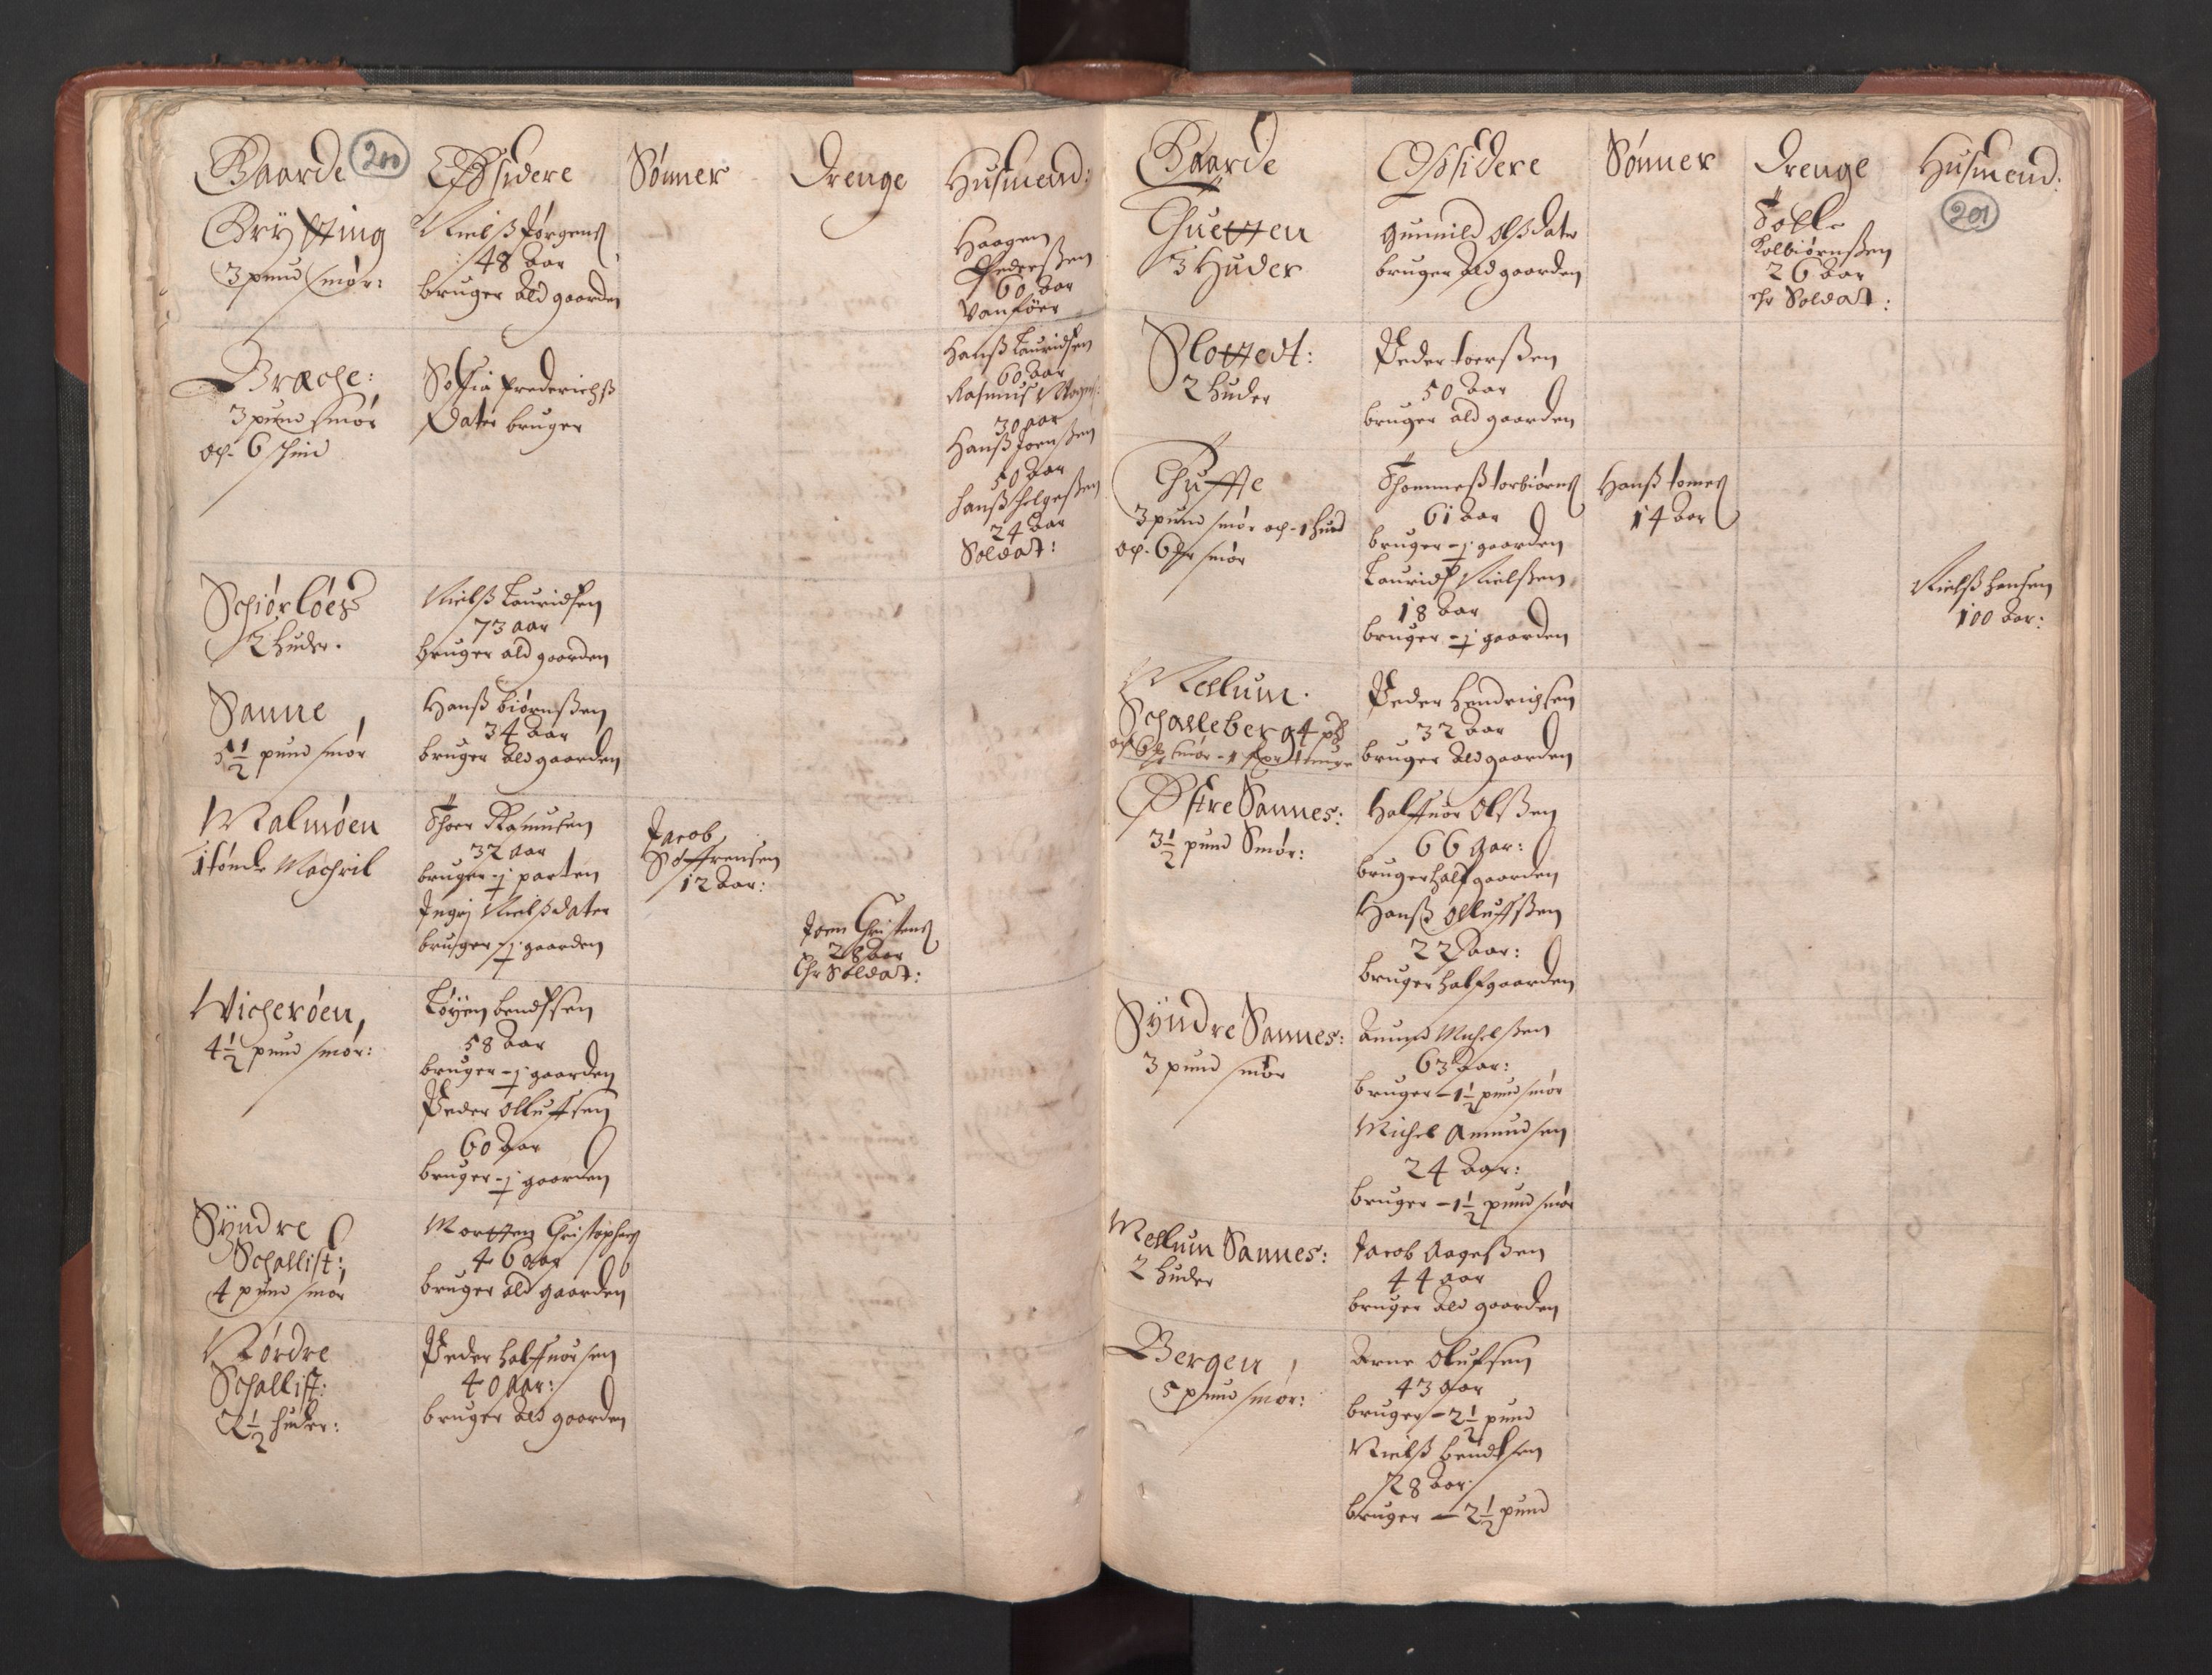 Gaarde 200 Opsidere Sønner Drenge Husmend:
Grytting
3 pund smør:
Nielß Jørgenß
48 aar
bruger ald gaarden
Haagen
Pederßen
60 aar
Vanföer
Bræche:
3 pund smør
och 6 schind
Sofia Frederichß
Dater bruger
Hanß Lauridsen
60 aar
Rasmus
30 aar
Hanß Joenßen
50 aar
Hanß Helgeßen
24 aar
Soldat:
Schiørløes
2 huder.
Nielß Lauridsen
73 aar
bruger ald gaarden
Sanne,
5½ pund smør
Hanß biørnßen
34 aar
bruger ald gaarden
Malmøen
1 tønde Machril
Thoer Rasmusen
32 aar
bruger ½ parten
Ingri Nielßdater
bruger ½ gaarden
Jacob
Søffrensen
12 aar:
Joen Christenß
28 aar
Ehr Soldat:
Wicherøen,
4½ pund smør:
Tøyen bendtsen
58 aar
bruger ½ gaarden
Peder olluffsen
60 aar
bruger ½ gaarden
Syndre
Schallist:
4 pund smør
Mortten Christophers
46 aar
bruger ald gaarden
Nørdre
Schallist:
2½ huder:
Peder halffuorsen
40 aar:
bruger ald gaarden
Gaarde Opsidere Sønner Drenge Husmend:
201
Thuetten
3 Huder
Gunnild Olßdater
bruger ald gaarden
Kolbiørnßen
26 aar
ehr Soldat:
Slottedt:
2 huder
Peder toerßen
50 aar
bruger ald gaarden
Thuffte
3 pund smør och 1 hud
och 6 smør
Thommeß torbiørnß
61 aar
bruger ½ gaarden
Lauridß Nielßen
18 aar
bruger ½ gaarden
Hanß tomeß
14 aar
Nielß Hansen
100 aar:
Mellum.
Schalleberg 4
Peder Hendrichsen
32 aar
bruger ald gaarden
Østre Sannes:
3½ pund Smør:
Halffuor Olßen
66 aar:
bruger half gaarden
Hanß Olluffßen
22 aar:
bruger half gaarden
Syndre Sannes:
3 pund smør
Amund Michelßen
63 aar:
bruger – 1½ pund smør
Michel Amundsen
24 aar:
bruger – 1½ pund smør
Mellum Sannes:
2 huder
Jacob Aageßen
44 aar
bruger ald gaarden
Bergen,
5 pund smør:
Arne Olufsen
43 aar
bruger – 2½ pund
Nielß bendtsen
28 aar:
bruger – 2½ pund